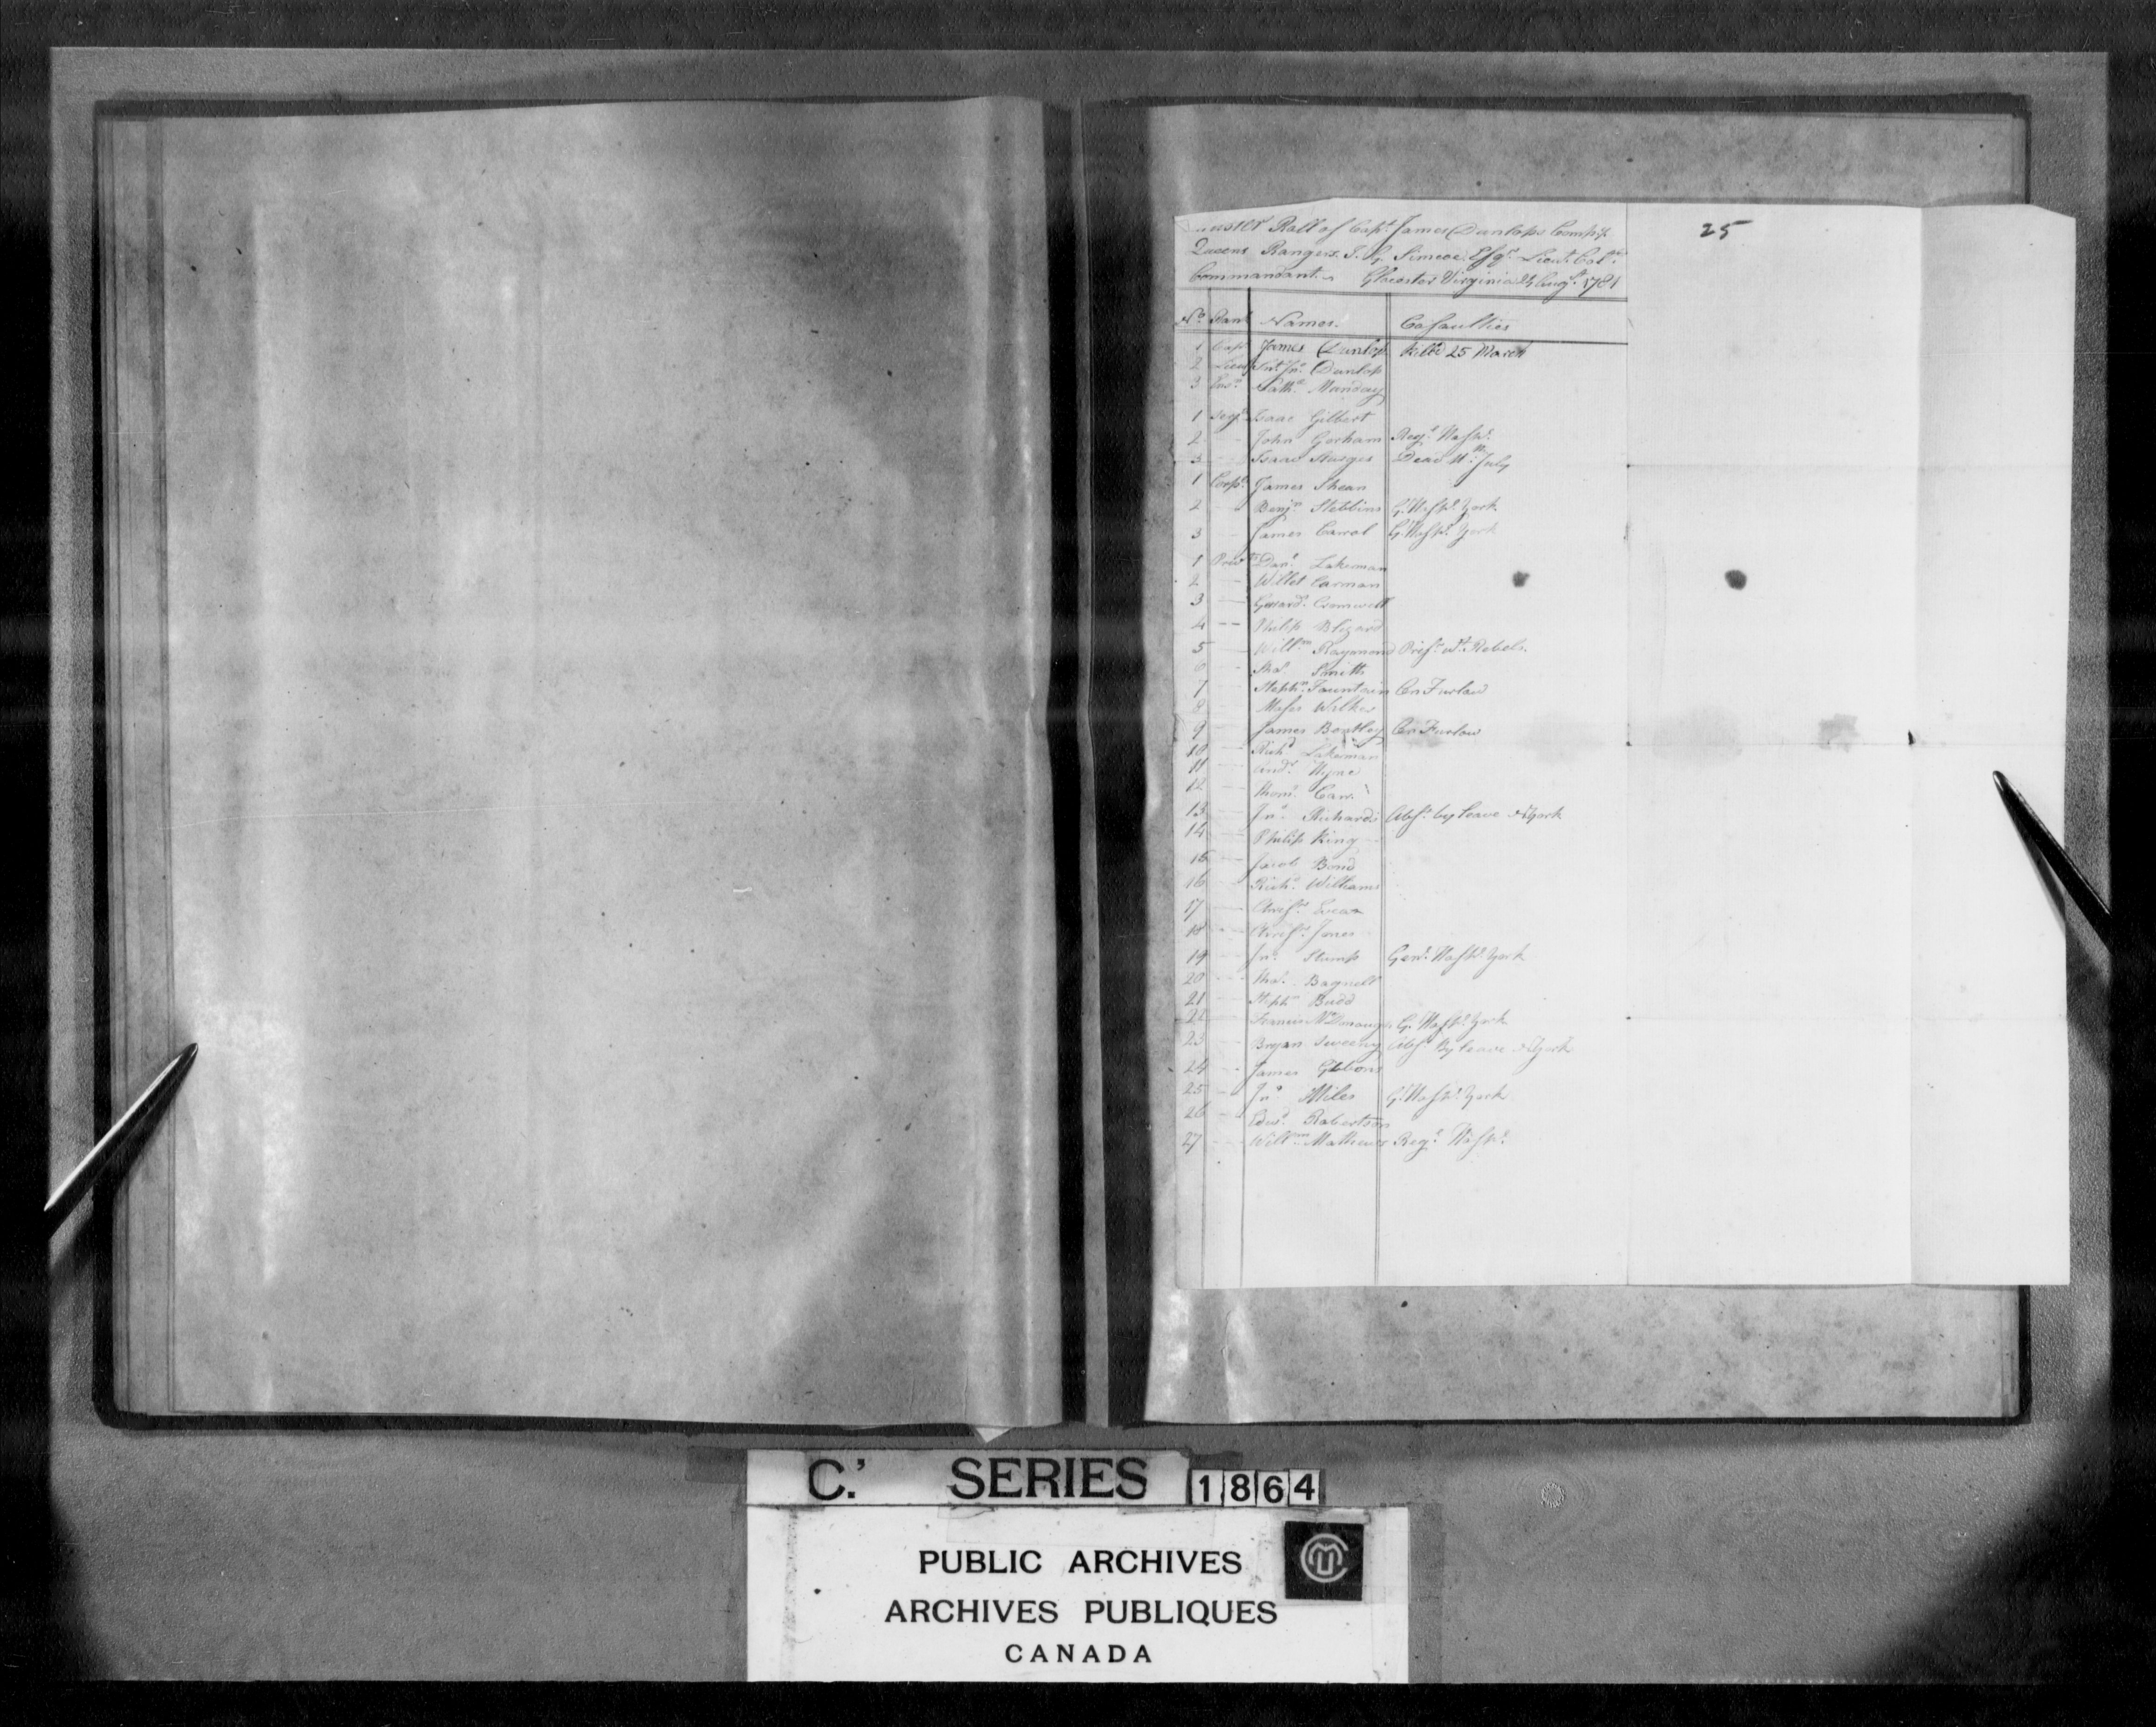 Muster Roll of Capt. James Dunlops Compy.
Queens Rangers. J. G. Simcoe Esqr. Lieut. Coln.
Commandant. Glocester Virginia 24 Augst. 1781
25
No. Rank Names. Casualties
1 Capt. James Dunlop Killd 25 March
2 Lieut. Jno. Dunlop
3 Ens. Nathl. Munday
1 Serjt. Isaac Gilbert
2 -- John Gorham Regl. Hospl.
3 -- Isaac Sturges Dead July
1 Corpl. James Shean
2 -- Benjn. Stebbins Gl. Hospl. York
3 -- James Carrol Gl. Hospl. York
1 Privts. Danl. Lakeman
2 -- Willet Carman
3 -- Gerard Cromwell
4 -- Philip Blizard
5 -- Willm. Raymond Prisr. wt. Rebels.
6 -- Thos. Smith
7 -- Stephn. Fountain On Furlow
8 Moses Wilkes
9 -- James Bentley On Furlow
10 -- Richd. Lakeman
11 -- Andw.
12 -- Thoms. Carr.
13 -- Jno. Richards Abst. by leave N York
14 -- Philip King
15 -- Jacob Bond
16 -- Richd. Williams
17 -- Christr.
18 -- Christr. Jones
19 -- Jno. Stump Genl. Hospl. York
20 -- Thos. Bagnell
21 -- Stephn. Budd
22 -- Francis McDonough G. Hospl. York
23 -- Bryan Sweeny Abst. By leave N York
24 -- James Gibbons
25 -- Jno. Miles Gl. Hospl. York
26 -- Edwd. Robertson
27 -- Willm. Mathews Regl. Hospl.
C.' SERIES 1864
PUBLIC ARCHIVES
ARCHIVES PUBLIQUES
CANADA